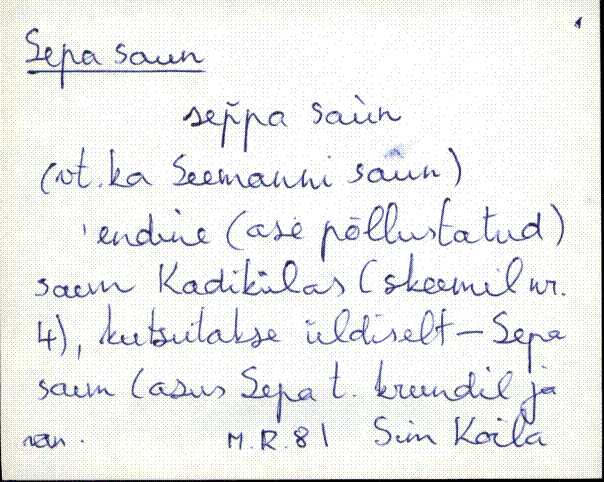 Sepa saun
sep̀pa saùn
(vt. ka Seemanni saun)
endine (ase põllustatud)
saun Kadikülas (skeemil nr.
4), kutsutakse üldiselt — Sepa
saun (asus Sepa t. krundil ja
M.R. 81 Sim Koila